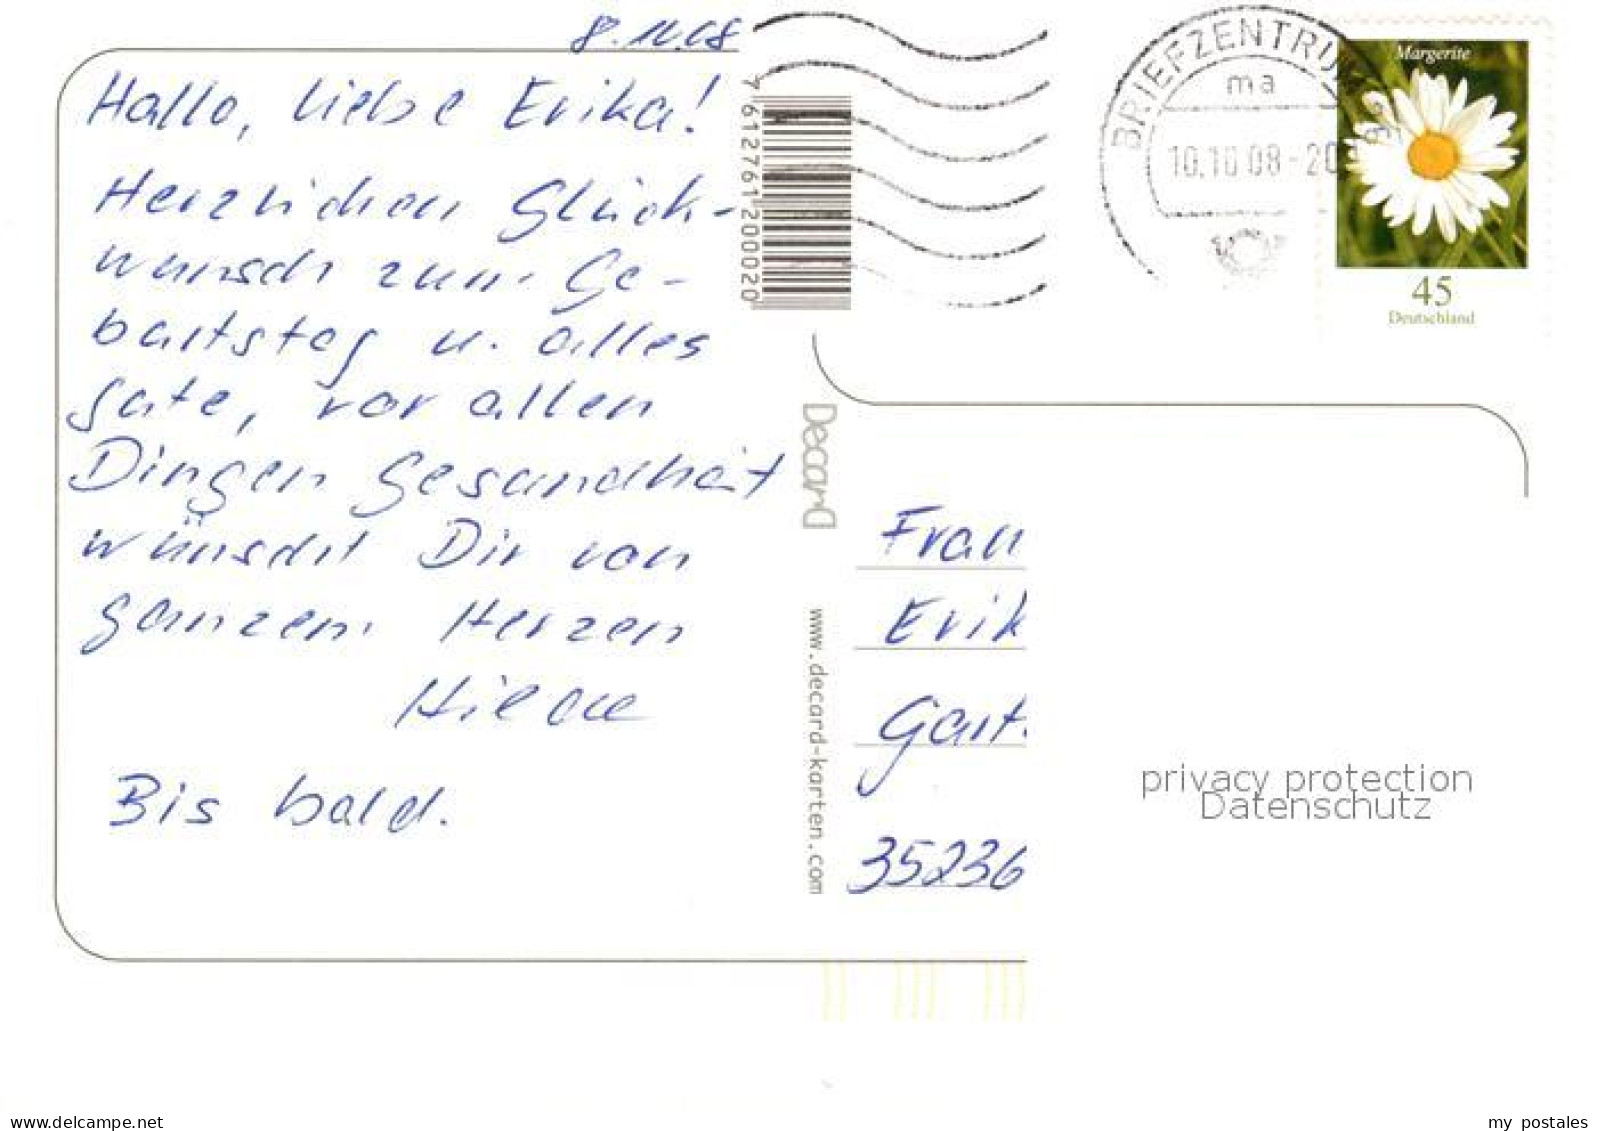 8.10.08
Hallo, liebe Erika!
Herzlichen Glück-
wunsch zum Ge-
burtstag u. alles
Gute, vor allen
Dingen Gesundheit
wünscht Dir von
ganzem Herzen
Hilde
Bis bald.
7 612761 200020
Decard
www.decard-karten.com
BRIEFZENTRUM
ma
10.10.08-20
Margerite
45
Deutschland
Frau
Erik
Gart
35236
privacy protection
Datenschutz
delcampe.net
my_postales